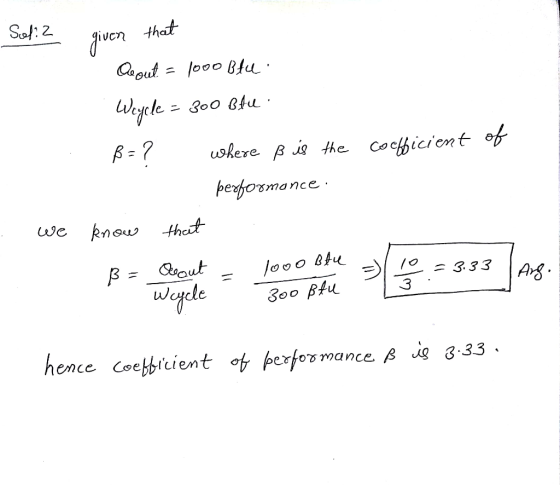 Sol: 2 given that
Qout = 1000 Btu.
Wcycle = 300 Btu.
β = ? where β is the coefficient of
performance.
we know that
β = Qout / Wcycle = 1000 Btu / 300 Btu ⇒ 10/3 = 3.33 Ans.
hence coefficient of performance β is 3.33.